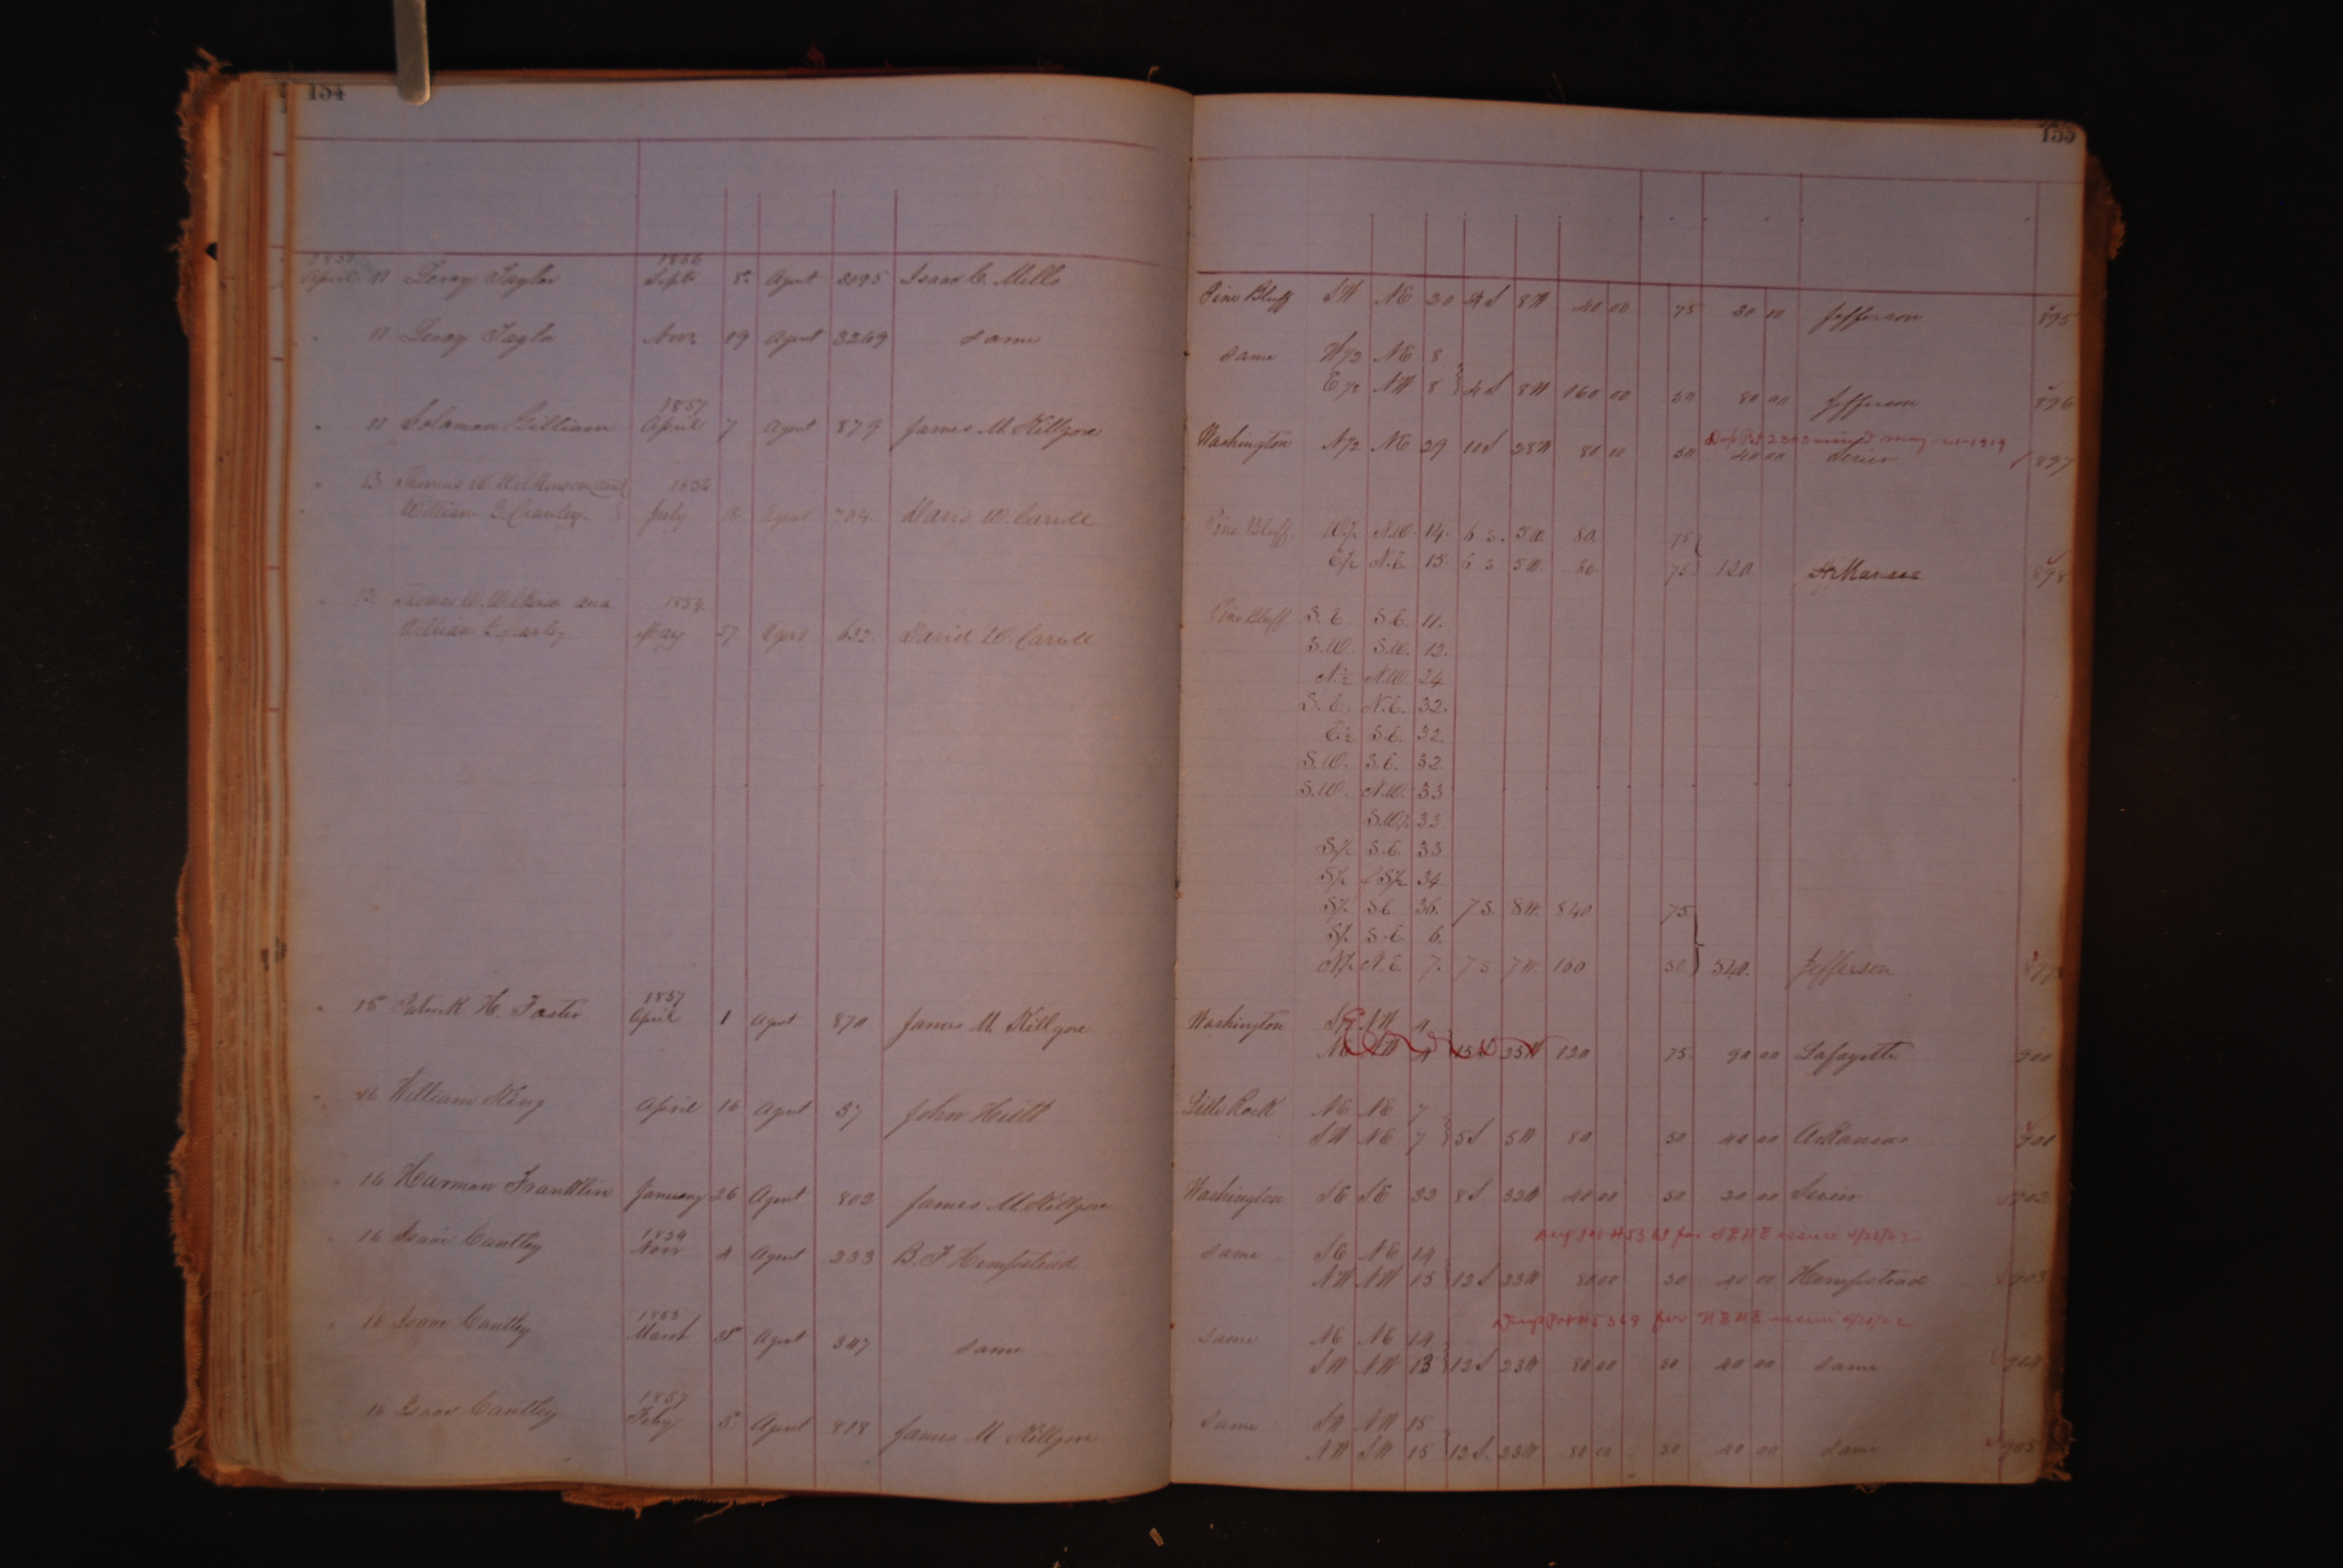 154
1857 1856
April 11 Leroy Taylor Sept 8 Agent 3095 Isaac C. Mills
" 11 Leroy Taylo Novr 19 Agent 3249 Same
1857
" 11 Solomon Gilliam April 7 Agent 879 James M. Killgore
" 13 Thomas W. Wilkinson and 1854
William G. Crawley. July 18. Agent 704. David W. Caroll
" 13 Thomas W. Wilkinson and 1854.
William G. Crawley May 27 Agent 632. David W. Caroll
1857
" 15 Patrick H. Foster April 1 Agent 870 James M. Killgore
" 16 William King April 16 Agent 57 John Hutt
" 16 Harmon Franklin January 26 Agent 802 James M Killgore
1854
" 16 Isaac Cantley Novr 4 Agent 233 B. F. Hempstead
1855
" 16 Isaac Cantley March 31 Agent 347 Same
1857
16 Isaac Cantley Feby 5 Agent 818 James M Killgore
155
Pine Bluff SW NE 20 4S 8W 40 00 75 30 00 Jefferson 895
Same W½ NE 8
E½ NW 8 4S 8W 160 00 50 80 00 Jefferson 896
May 21-1919
Washington N½ NE 29 10S 28W 80 00 50 40 00 Sevier 897
Pine Bluff. W½ N.W. 14. 6 S. 5W. 80. 75
E½ N.E. 15. 6 S 5W. 80. 75 120 Arkansas 898
Pine Bluff S.E. S.E. 11.
S.W. S.W. 12.
N½ N.W. 24
S.E. N.E. 32.
E½ S.E. 32.
S.W. S.E. 32.
S.W. N.W. 33
S.W¼ 33
S½ S.E. 33
S½ of S½ 34
S½ S.E. 36. 7S. 8W. 840 75
S½ S.E. 6.
N½ N.E. 7. 7S 7W. 160 50 540. Jefferson 899
Washington
SW 15S 25W 120 75 90 00 Lafayette 900
Little Rock NE NE 7
SW NE 7 5S 5W 80 50 40 00 Arkansas 901
Washington SE SE 32 8S 32W 40 00 50 20 00 Sevier 902
for SENE
Same SE NE 14
NW NW 15 12S 23W 80 00 50 40 00 Hempstead 903
5369 for NENE
Same NE NE 14
SW NW 13 12S 23W 80 00 50 40 00 Same 904
Same SW NW 15
NW SW 15 12S. 23W 80 00 50 40 00 Same 905